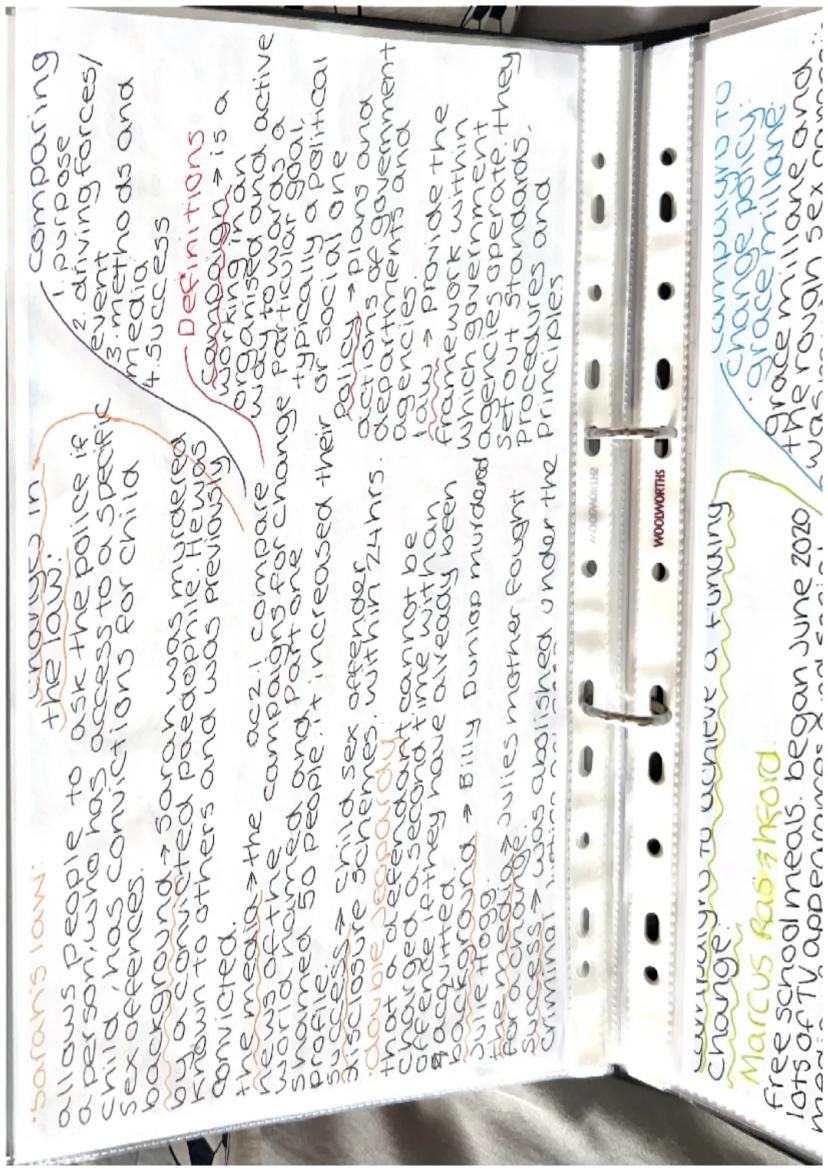 changes in
the law:
·Sarah's law:
allows people to ask the police if
a person, who has access to a specific
child, has convictions for child
sex offences.
background → Sarah was murdered
by a convicted paedophile. He was
known to others and was previously
convicted.
the media → the
news of the
world named and
shamed 50 people. it increased their
profile.
success → child sex offender
disclosure schemes. within 24hrs.
·double jeopardy
that a defendant cannot be
charged a second time with an
offence if they have already been
acquitted.
background → Billy Dunlop murdered
Julie Hogg.
the media → Julies mother fought
for change.
success → was abolished under the
criminal
ac2.1 compare
campaigns for change
Part one
comparing
1. purpose
2. driving forces/
event
3. methods and
media
4. success
Definitions
campaign → is a
working in an
organised and active
way towards a
particular goal.
typically a political
or social one
Policy → plans and
actions of government
departments and
agencies.
law → Provide the
framework within
which government
agencies operate. they
set out standards,
procedures and
principles
WOOLWORTHS
WOOLWORTHS
campaigns to achieve a funding
change.
·Marcus Rashford
free school meals. began June 2020
lots of TV appearances and social
campaigns to
change policy:
·grace millane
grace millane and
the rough sex